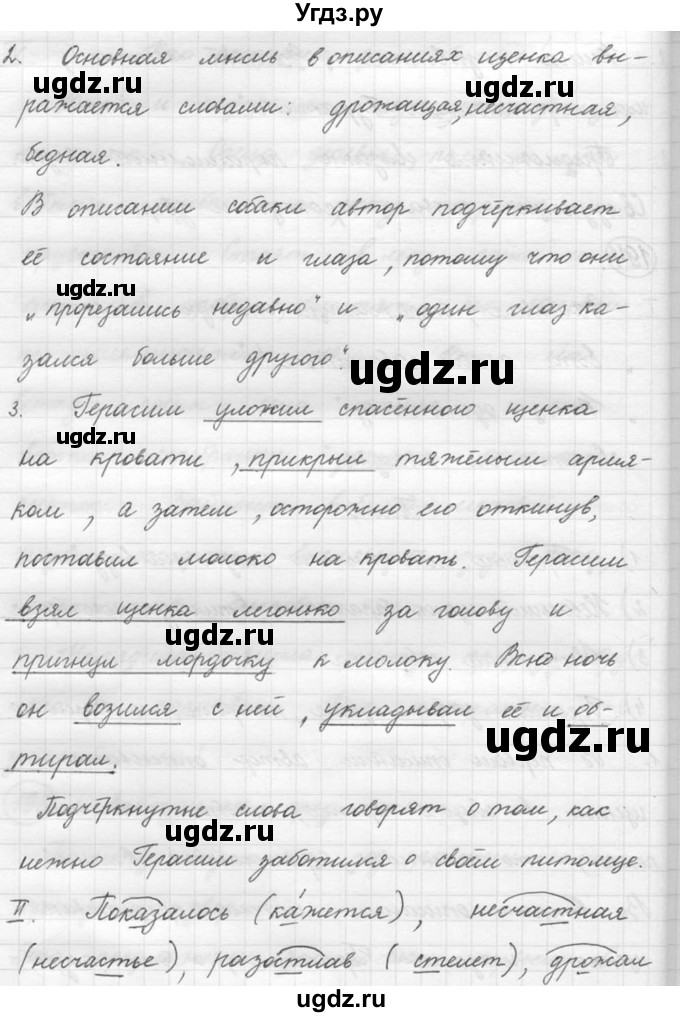 Угдз.ру
2. Основная мысль в описаниях щенка вы-
ugdz.ru ugdz.ru
ражается словами: дрожащая, несчастная,
бедная.
В описании собаки автор подчёркивает
её состояние и глаза, потому что они
ugdz.ru
„прорезались недавно" и „один глаз ка-
зался больше другого".
ugdz.ru
3. Герасим уложил спасённого щенка
ugdz.ru
на кровати, прикрыл тяжёлым армя-
ком, а затем, осторожно его откинув,
поставил молоко на кровать. Герасим
взял щенка легонько за голову и
ugdz.ru
пригнул мордочку к молоку. Всю ночь
он возился с ней, укладывал её и об-
ugdz.ru
тирал.
Подчёркнутые слова говорят о том, как
ugdz.ru
нежно Герасим заботился о своём питомце.
II. Показалось (кажется), несчастная
(несчастье), разостлав (стелет), дрожал
ugdz.ru